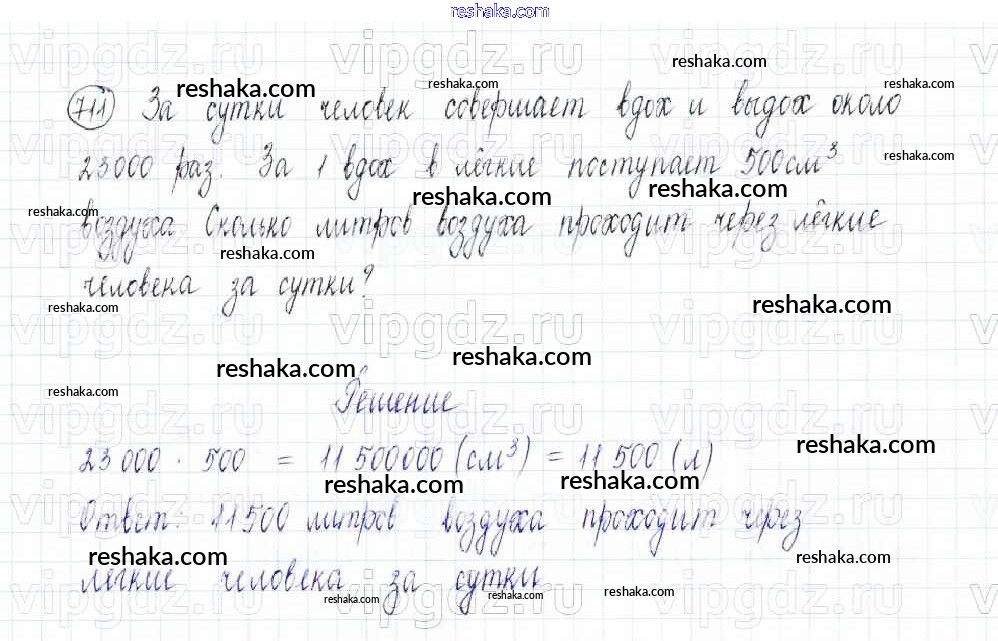 reshaka.com
711 За сутки человек совершает вдох и выдох около
23000 раз. За 1 вдох в лёгкие поступает 500 см³
воздуха Сколько литров воздуха проходит через лёгкие
человека за сутки?
Решение
23 000 · 500 = 11 500000 (см³) = 11 500 (л)
Ответ: 11500 литров воздуха проходит через
лёгкие человека за сутки